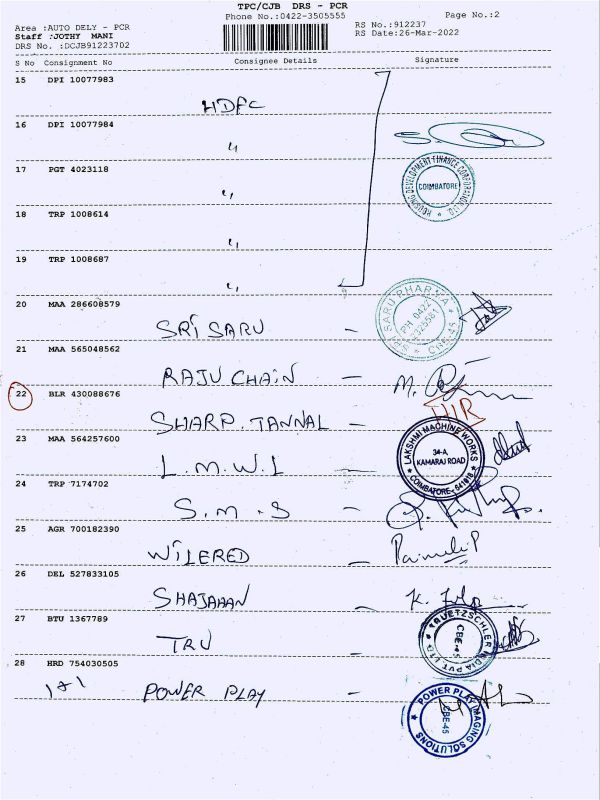 TPC/CJB DRS - PCR
Phone No.:0422-3505555
Page No.:2
Area :AUTO DELY - PCR
RS No.:912237
Staff :JOTHY MANI
RS Date:26-Mar-2022
DRS No. :DCJB91223702
S No Consignment No Consignee Details Signature
15 DPI 10077983
HDFC
16 DPI 10077984
"
17 PGT 4023118
HOUSING DEVELOPMENT FINANCE CORPORATION LTD
COIMBATORE
"
18 TRP 1008614
"
19 TRP 1008687
"
20 MAA 286608579
SRI SARU -
SRI SARU PHARMA
PH 0422
CBE-45
21 MAA 565048562
RAJU CHAIN -
22 BLR 430088676
SHARP TANNAL -
23 MAA 564257600
L.M.W.L -
LAKSHMI MACHINE WORKS
34-A,
KAMARAJ ROAD
COIMBATORE, 641018
24 TRP 7174702
S.M.S -
25 AGR 700182390
WILERED -
26 DEL 527833105
SHAJAHAN -
27 BTU 1367789
TRU -
TRUETZSCHLER INDIA PVT LTD
CBE-45
28 HRD 754030505
1+1 POWER PLAY -
POWER PLAY IMAGING SOLUTIONS
CBE-45